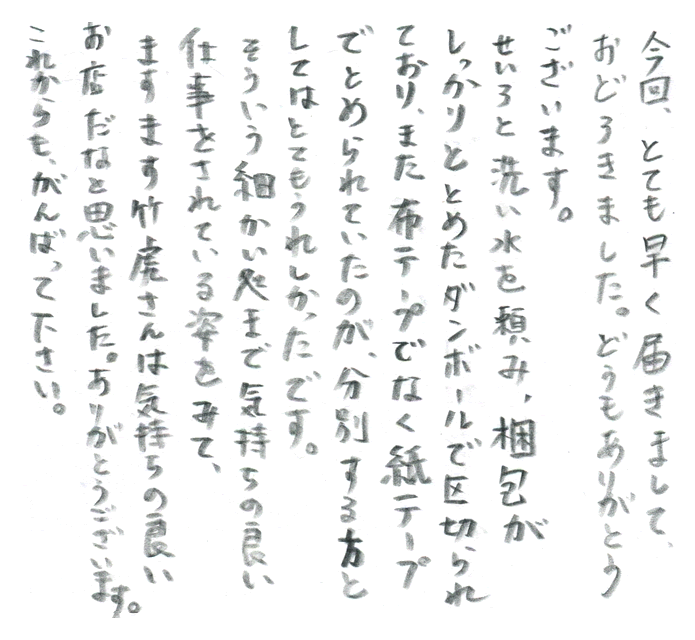 今回、とても早く届きまして、
おどろきました。どうもありがとう
ございます。
せいろと洗い水を頼み、梱包が
しっかりととめたダンボールで区切られ
ており、また布テープでなく紙テープ
でとめられていたのが、分別する方と
してはとてもうれしかったです。
そういう細かい処まで気持ちの良い
仕事をされている姿をみて、
ますます竹虎さんは気持ちの良い
お店だなと思いました。ありがとうございます。
これからも、がんばって下さい。